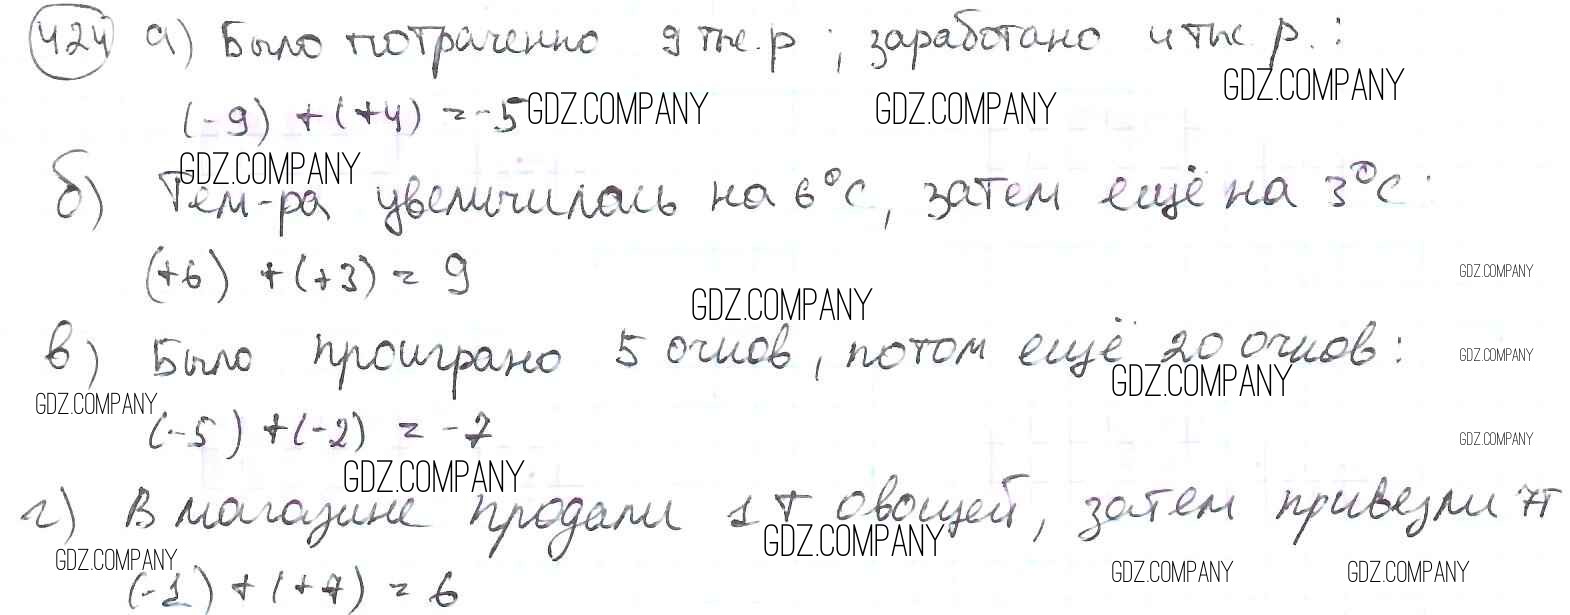 424 а) Было потраченно 9 тыс. р ; заработано 4 тыс р. :
GDZ.COMPANY
(-9) + (+4) = -5 GDZ.COMPANY GDZ.COMPANY
GDZ.COMPANY
б) Тем-ра увеличилась на 6°С, затем ещё на 3°С :
(+6) + (+3) = 9
GDZ.COMPANY
GDZ.COMPANY
в) Было проиграно 5 очков, потом ещё 20 очков :
GDZ.COMPANY
GDZ.COMPANY
GDZ.COMPANY
(-5) + (-2) = -7
GDZ.COMPANY
GDZ.COMPANY
г) В магазине продали 1 т овощей, затем привезли 7т
GDZ.COMPANY
GDZ.COMPANY
GDZ.COMPANY GDZ.COMPANY
(-1) + (+7) = 6